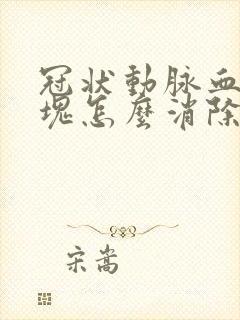 冠状動脉血
塊怎麼消除
宋嵩